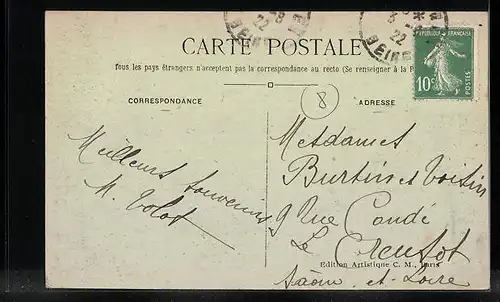 CARTE POSTALE
Tous les pays étrangers n'acceptent pas la correspondance au recto (Se renseigner à la P
CORRESPONDANCE
ADRESSE
8
REPUBLIQUE FRANÇAISE
10c
POSTES
22
22
Meilleurs souvenirs
M. Volot
Mesdames
Burtin et Voisin
9 Rue Condé
Le Creusot
Saône et Loire
Edition Artistique C. M., Paris